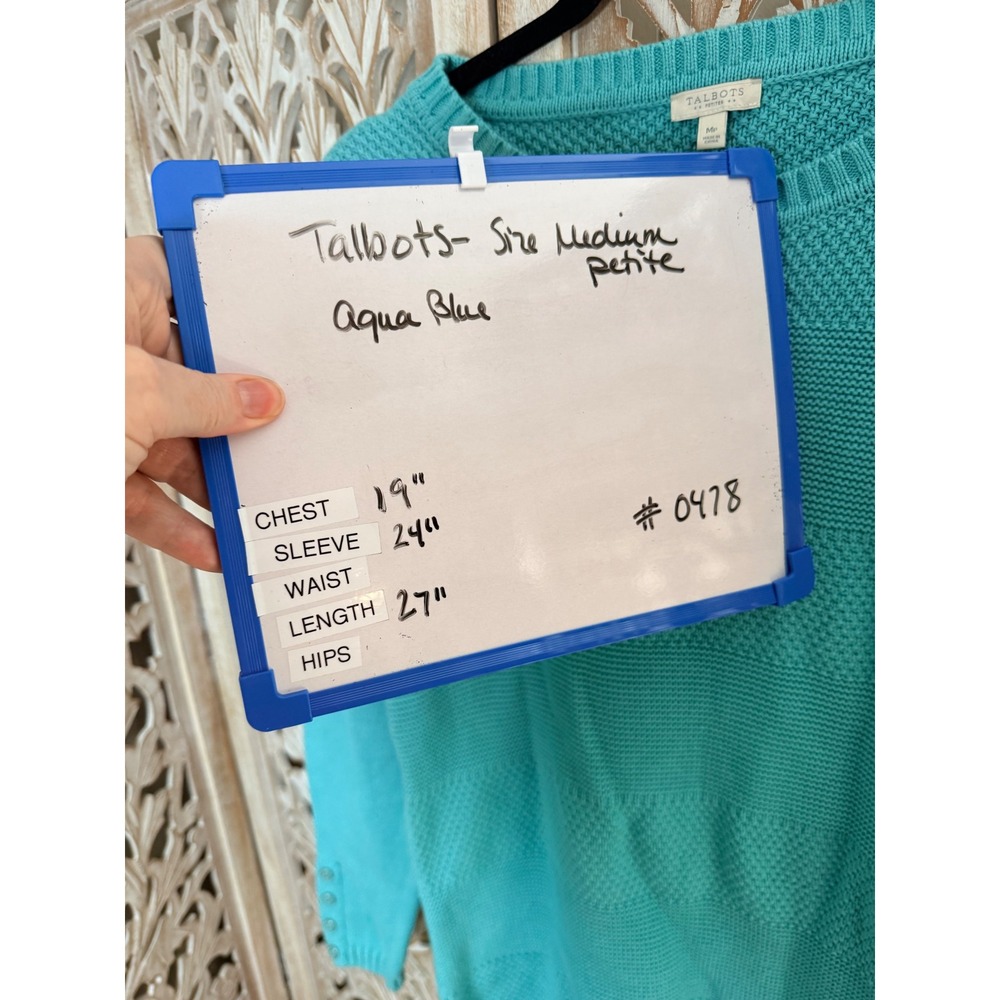 TALBOTS
PETITES
MP
Talbots- Size Medium
petite
Aqua Blue
CHEST 19"
SLEEVE 24"
WAIST
LENGTH 27"
HIPS
# 0478